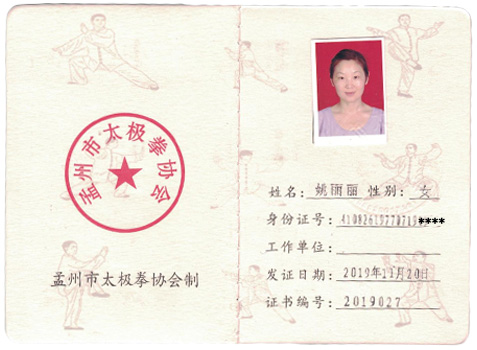 孟州市太极拳协会
孟州市太极拳协会制
姓名:姚丽丽 性别:女
身份证号:
工作单位:
发证日期:2019年11月20日
证书编号:2019027